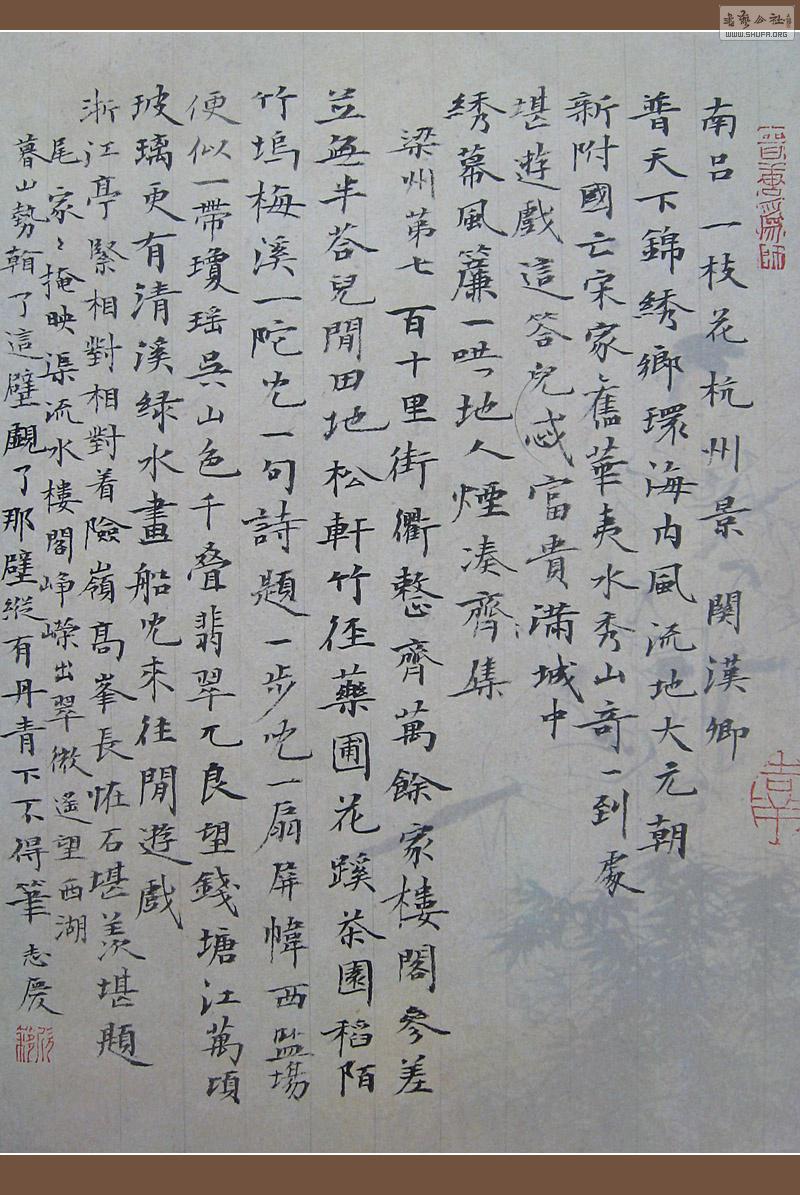 書藝公社
WWW.SHUFA.ORG
晉唐爲師
南呂一枝花杭州景 關漢卿
普天下錦綉鄉環海内風流地大元朝
新附國亡宋家舊華夷水秀山奇一到處
堪遊戲這答兒忒富貴滿城中
綉幕風簾一哄地人煙湊齊集
梁州第七百十里街衢整齊萬餘家樓閣參差
並無半荅兒閒田地松軒竹徑藥圃花蹊茶園稻陌
竹塢梅溪一陀兒一句詩題一步兒一扇屏幃西塩場
便似一帶瓊瑤吳山色千叠翡翠兀良望錢塘江萬頃
玻璃更有清溪緑水畫船兒來往閒遊戲
浙江亭緊相對相對着險嶺高峯長怪石堪羨堪題
尾家々掩映渠流水樓閣峥嶸出翠微遙望西湖
暮山勢了這壁覷了那壁縱有丹青下不得筆 志慶